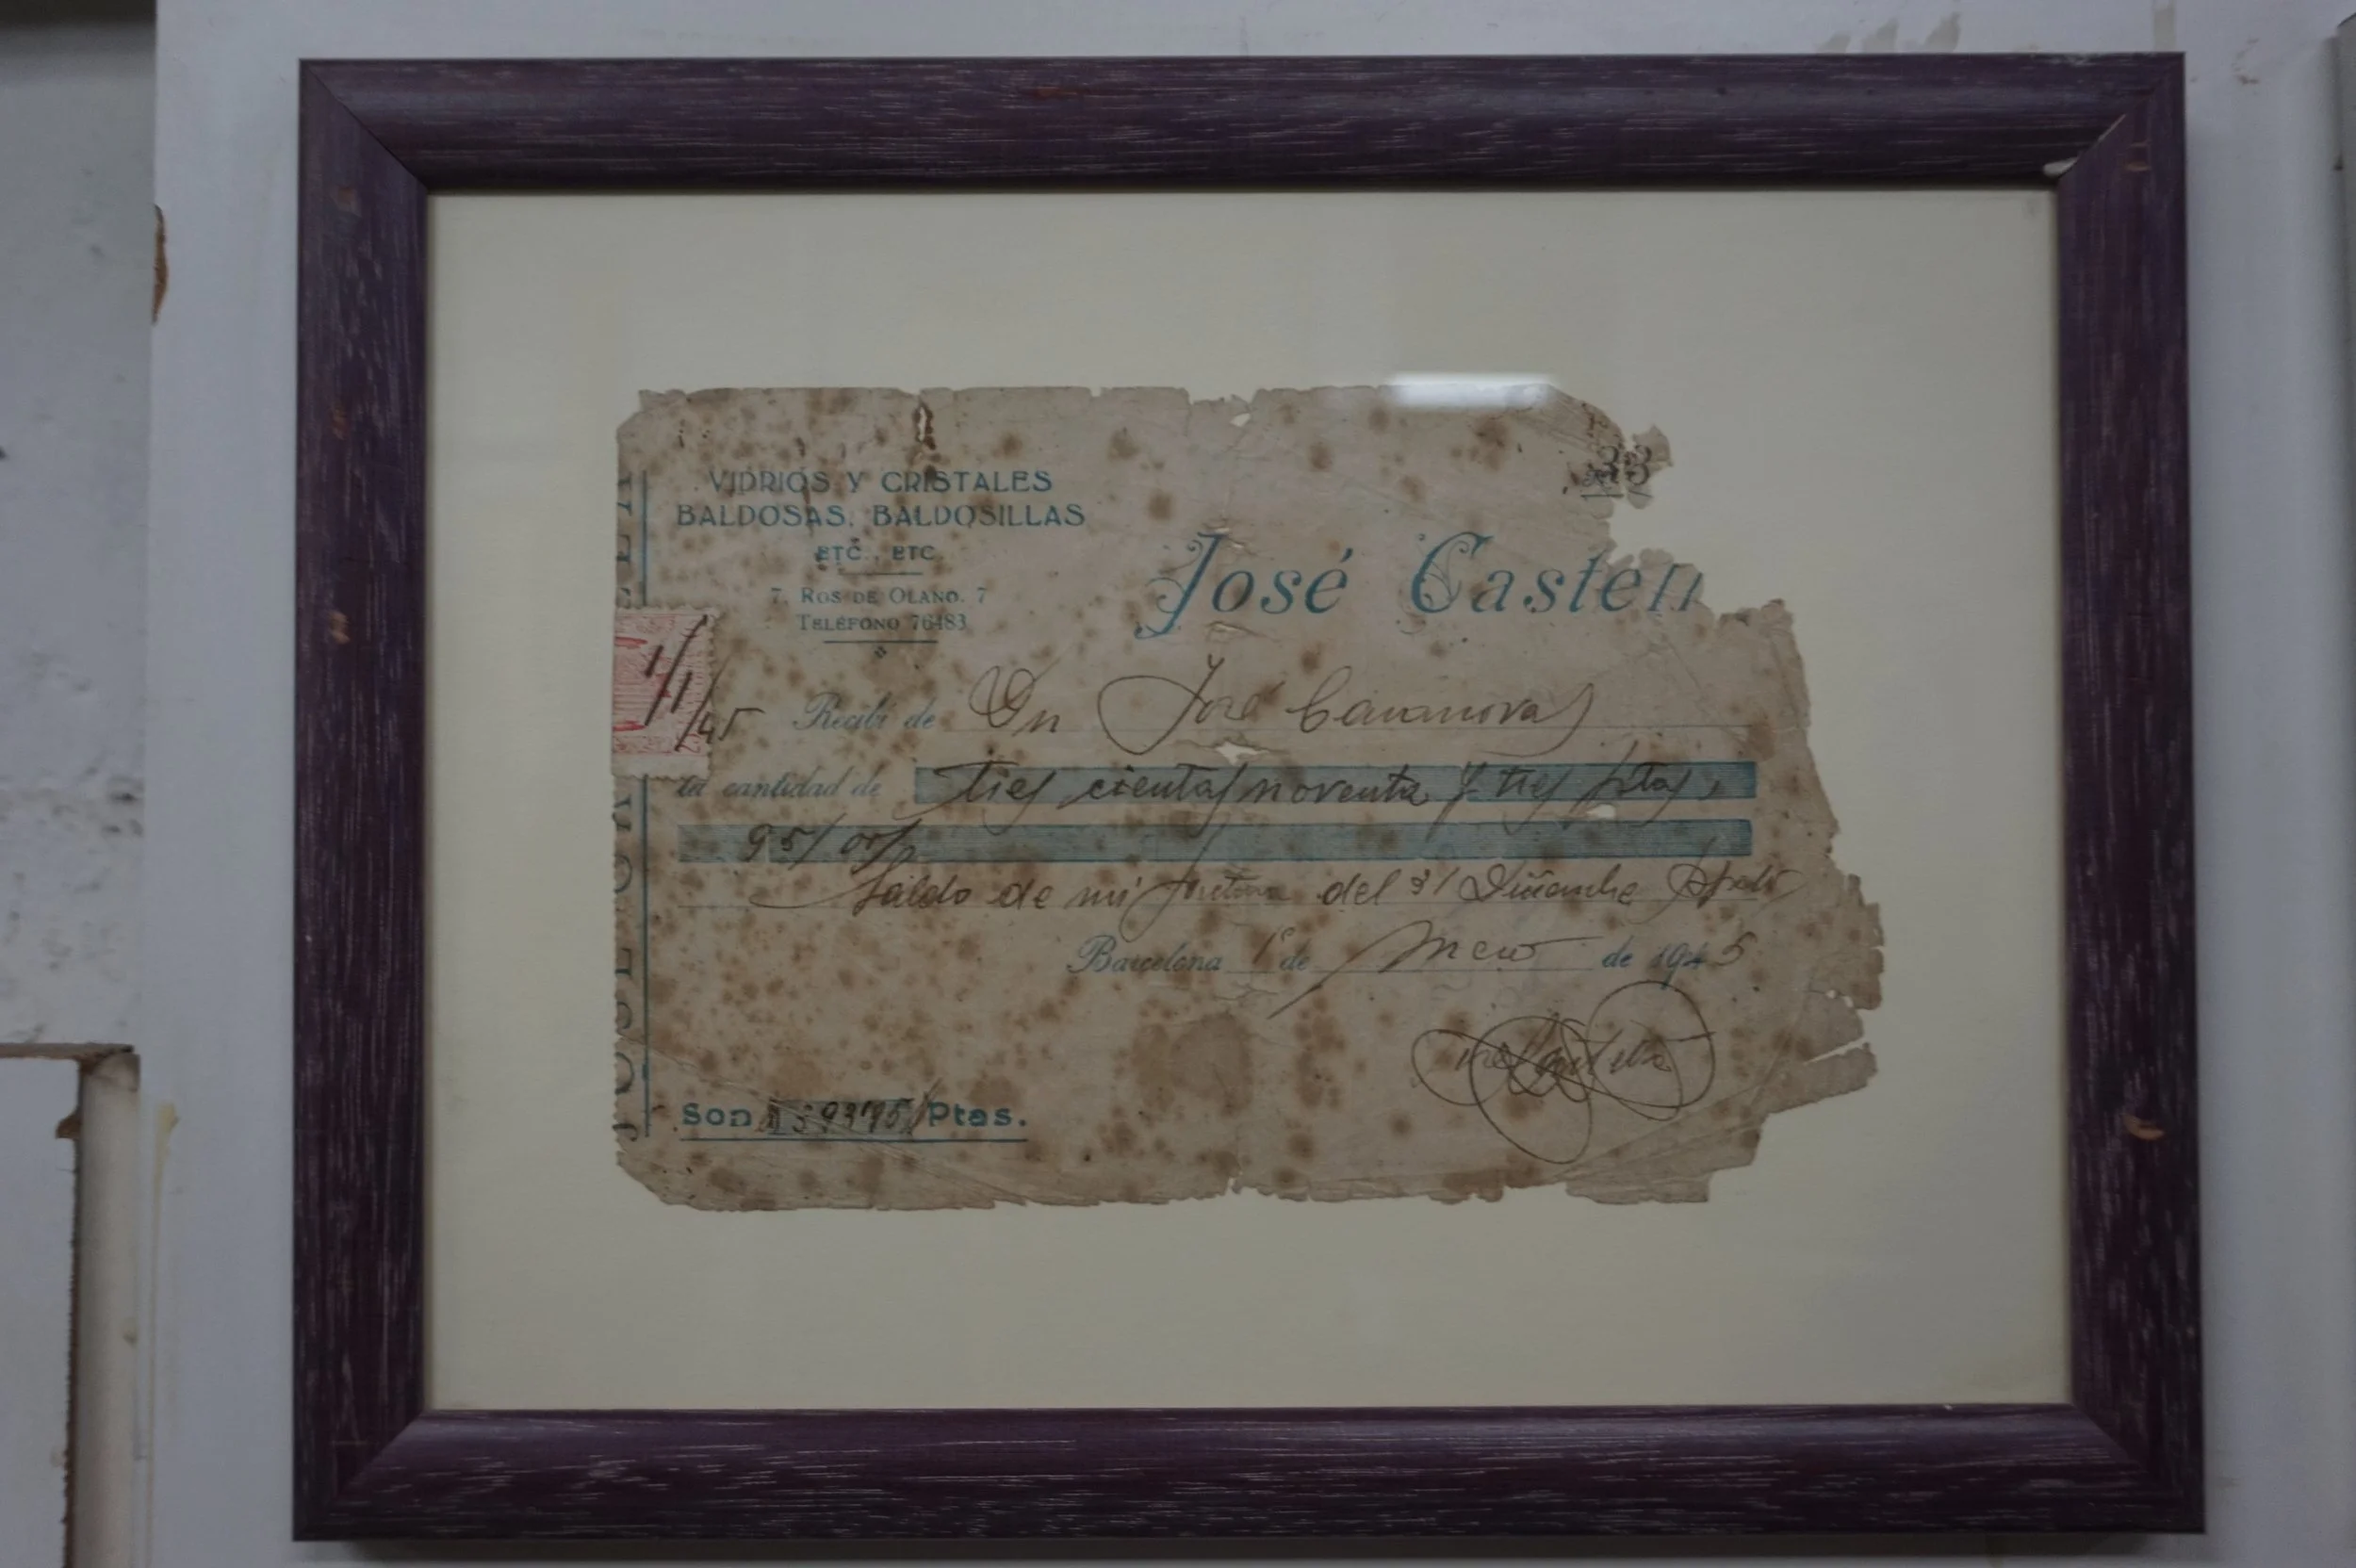 VIDRIOS Y CRISTALES
BALDOSAS, BALDOSILLAS
ETC., ETC.
7, ROS DE OLANO, 7
TELÉFONO 76483
José Castell
1/1/45
Recibí de Dn José Casanovas
la cantidad de tres cientas noventa y tres ptas,
95/00
Saldo de mi factura del 31 Diciembre
Barcelona 1º de de 1945
Son 393'95 Ptas.